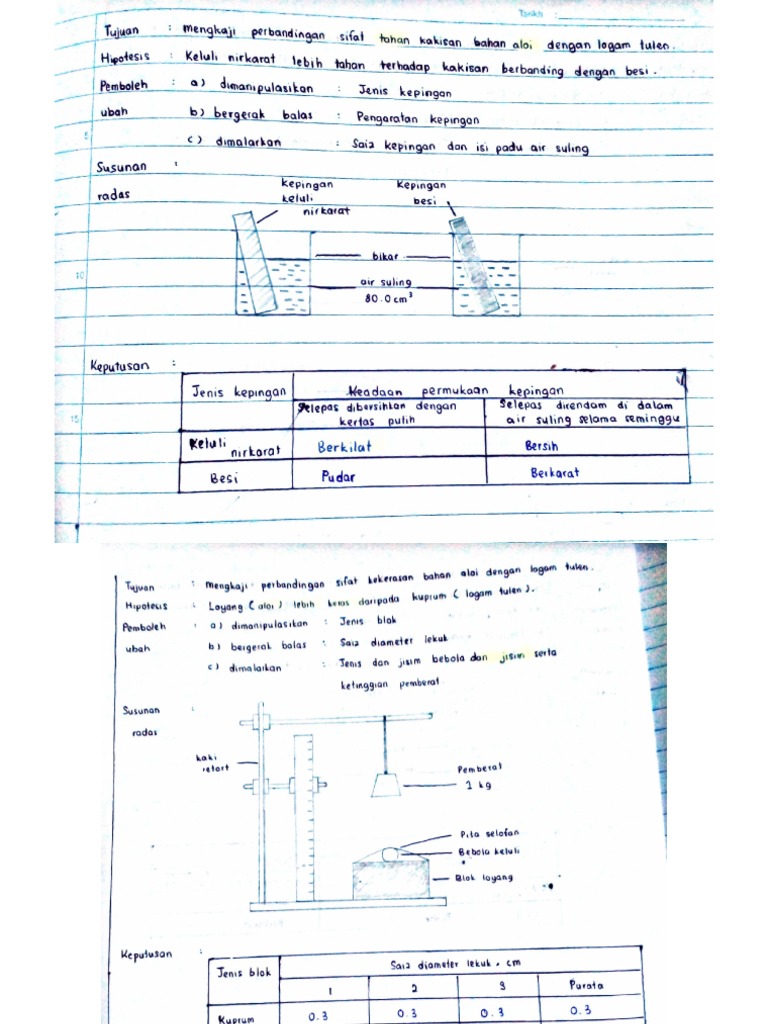 Tarikh :
Tujuan : mengkaji perbandingan sifat tahan kakisan bahan aloi dengan logam tulen.
Hipotesis : Keluli nirkarat lebih tahan terhadap kakisan berbanding dengan besi.
Pemboleh : a) dimanipulasikan : Jenis kepingan
ubah b) bergerak balas : Pengaratan kepingan
c) dimalarkan : Saiz kepingan dan isi padu air suling
Susunan :
radas
kepingan keluli nirkarat
Kepingan besi
bikar
air suling
80.0 cm³
Keputusan :
Jenis kepingan Keadaan permukaan kepingan
Selepas dibersihkan dengan kertas putih
Selepas direndam di dalam air suling selama seminggu
Keluli nirkarat Berkilat Bersih
Besi Pudar Berkarat
Tujuan : mengkaji perbandingan sifat kekerasan bahan aloi dengan logam tulen.
Hipotesis : Loyang (aloi) lebih keras daripada kuprum (logam tulen).
Pemboleh : a) dimanipulasikan : Jenis blok
ubah b) bergerak balas : Saiz diameter lekuk
c) dimalarkan : Jenis dan jisim bebola dan jisim serta
ketinggian pemberat
Susunan :
radas
kaki retort
Pemberat
1 kg
Pita selofan
Bebola keluli
Blok loyang
Keputusan :
Jenis blok Saiz diameter lekuk, cm
1 2 3 Purata
Kuprum 0.3 0.3 0.3 0.3